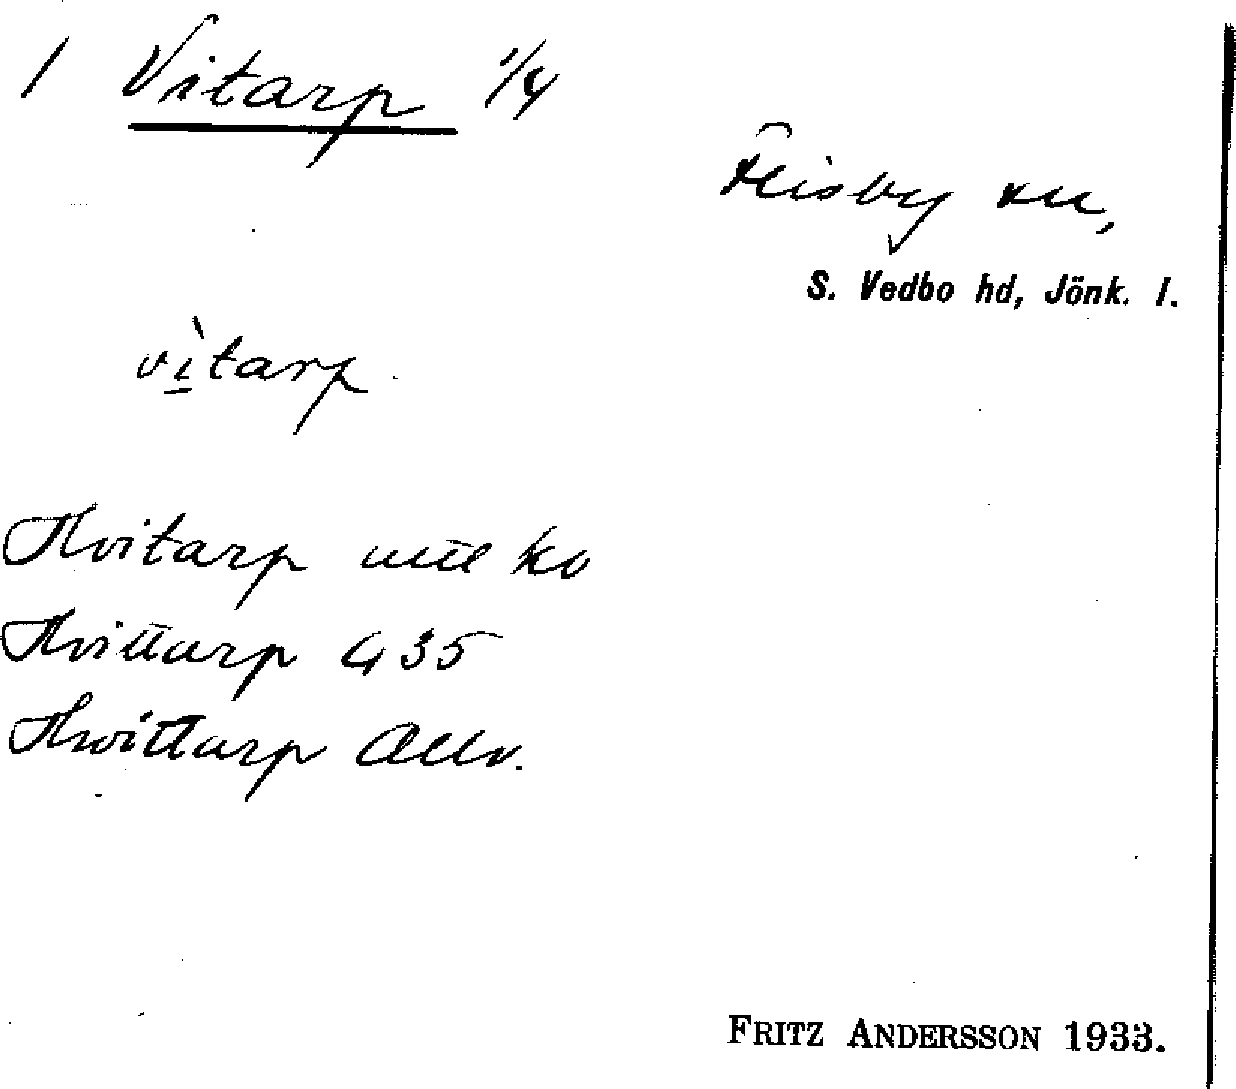 1 Vitarp 1/4
Flisby sn,
S. Vedbo hd, Jönk. l.
vìtarp.
Hvitarp
Hvittarp G 35
Hwittarp Allv.
FRITZ ANDERSSON 1933.